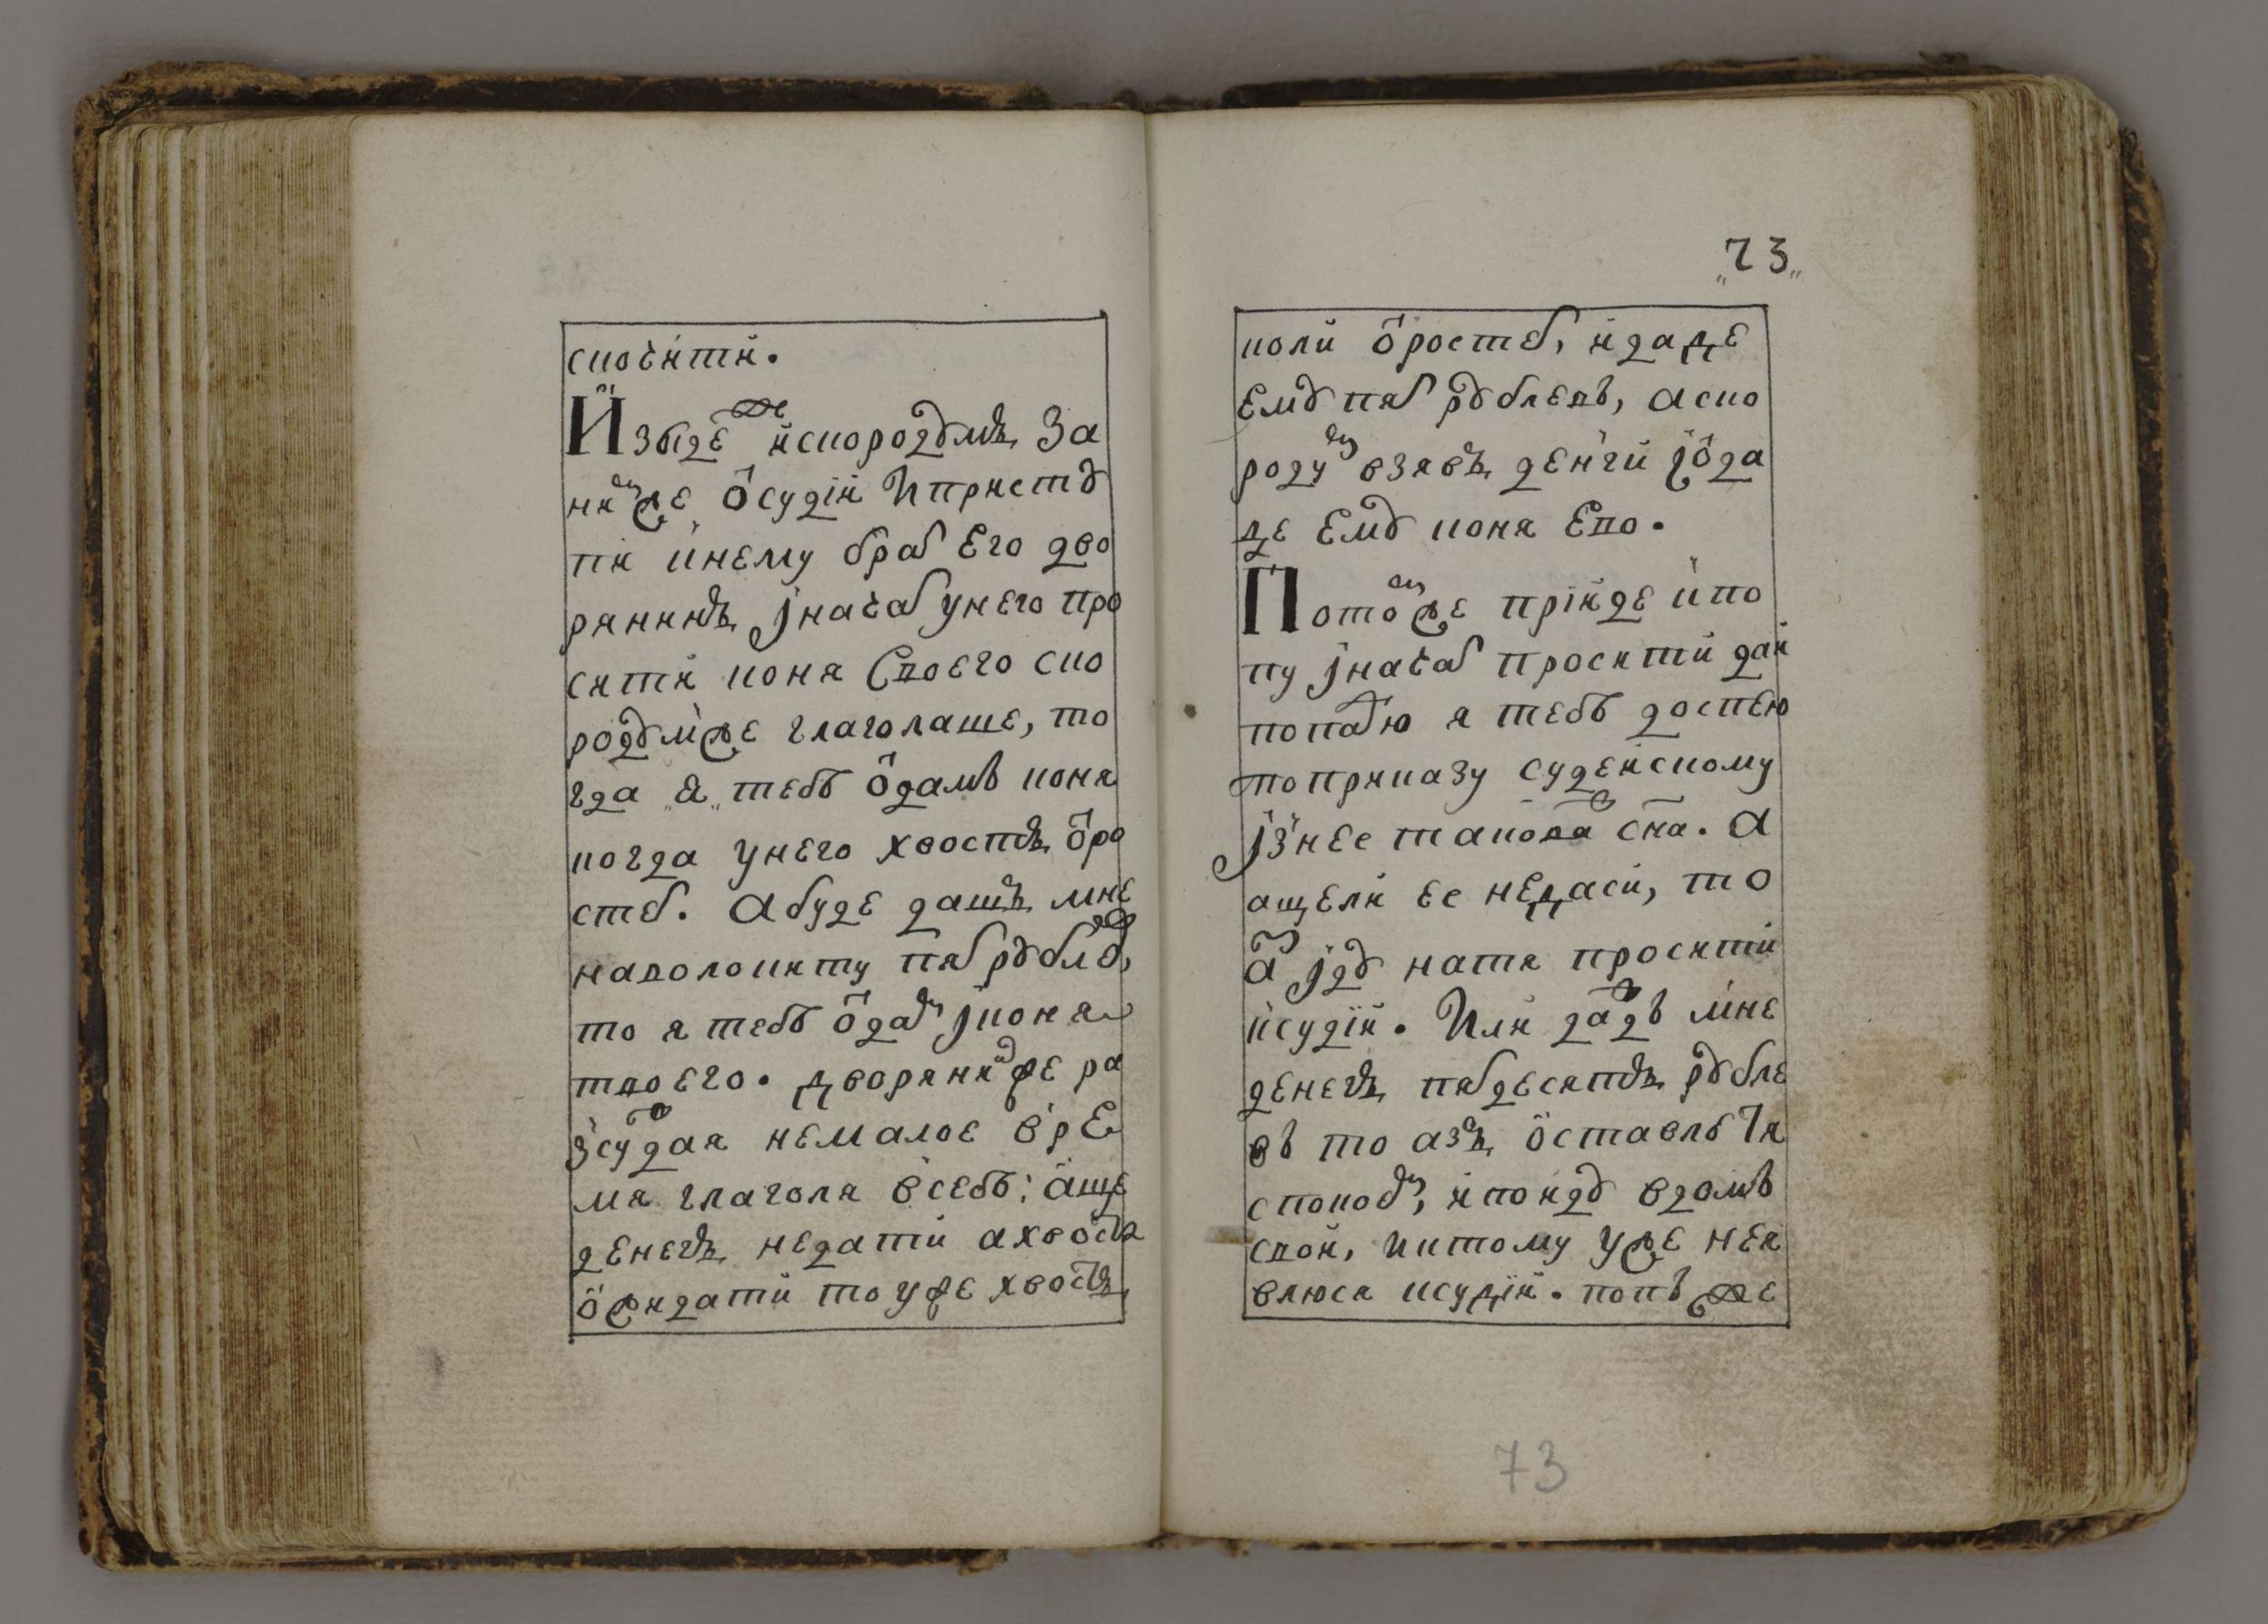 скочити.
Изыде же и скородумъ за
ним же ѿ судіи и присту
пи к нему брат его дво
рянинъ и начат у него про
сити коня своего ско
родум же глаголаше, то
гда я тебѣ ѿдамъ коня
когда у него хвостъ ѿро
стет. А буде дашъ мне
на волокиту пят рублѵ,
то я тебѣ ѿдам и коня
твоего. дворянин же ра
зсуждая немалое вре
мя глаголя в себѣ: аще
денегъ не дати а хвоста
ѿжидати то уже хвостъ
73
коли ѿростет, и даде
ему пят рублевъ, а ско
родум взявъ денги и ѿда
де ему коня ево.
Потом же прїиде к по
пу и начат просити дай
попадю я тебѣ доспею
по приказу судейскому
из нее такова сна. А
аще ли ее не даси, то
аз иду на тя просити
к судїи. Или даждь мне
денегъ пятдесятъ рубле
въ то азъ ѡставлѣ тя
с покоем, и поиду в домъ
свой, и к тому уже не я
влюся к судїи. попъ же
73